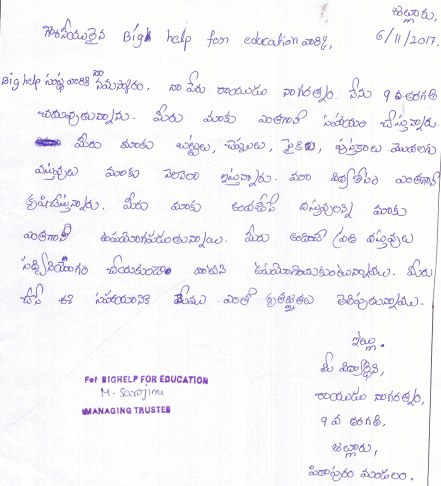 జల్లూరు.
6/11/2017.
గౌరవనీయులైన Bigh help for education వారికి,
Big help సంస్థ వారికి నా నమస్కారం. నా పేరు రాయుడు నాగరత్నం. నేను 9వ తరగతి
చదువుతున్నాను. మీరు మాకు ఎంతగానో సహాయం చేస్తున్నారు.
మీరు మాకు బట్టలు, చెప్పులు, సైకిలు, పుస్తకాలు మొదలగు
వస్తువులు మాకు ఇస్తున్నారు. మా ఎంతగానో
కృషిచేస్తున్నారు. మీరు మాకు అందజేసే వస్తువులన్ని మాకు
ఎంతగానో ఉపయోగపడుతున్నాయి. మీరు అందించే ప్రతి వస్తువు
చేయకుండా వాటిని ఉపయోగించుకుంటున్నాము. మీరు
చేసే ఈ సహాయానికి మేము ఎంతో కృతజ్ఞతలు తెలుపుతున్నాము.
ఇట్లు.
మీ విద్యార్థిని,
రాయుడు నాగరత్నం,
9 వ తరగతి,
జల్లూరు,
పిఠాపురం మండలం.
For BIGHELP FOR EDUCATION
M. Sarojini
MANAGING TRUSTEE